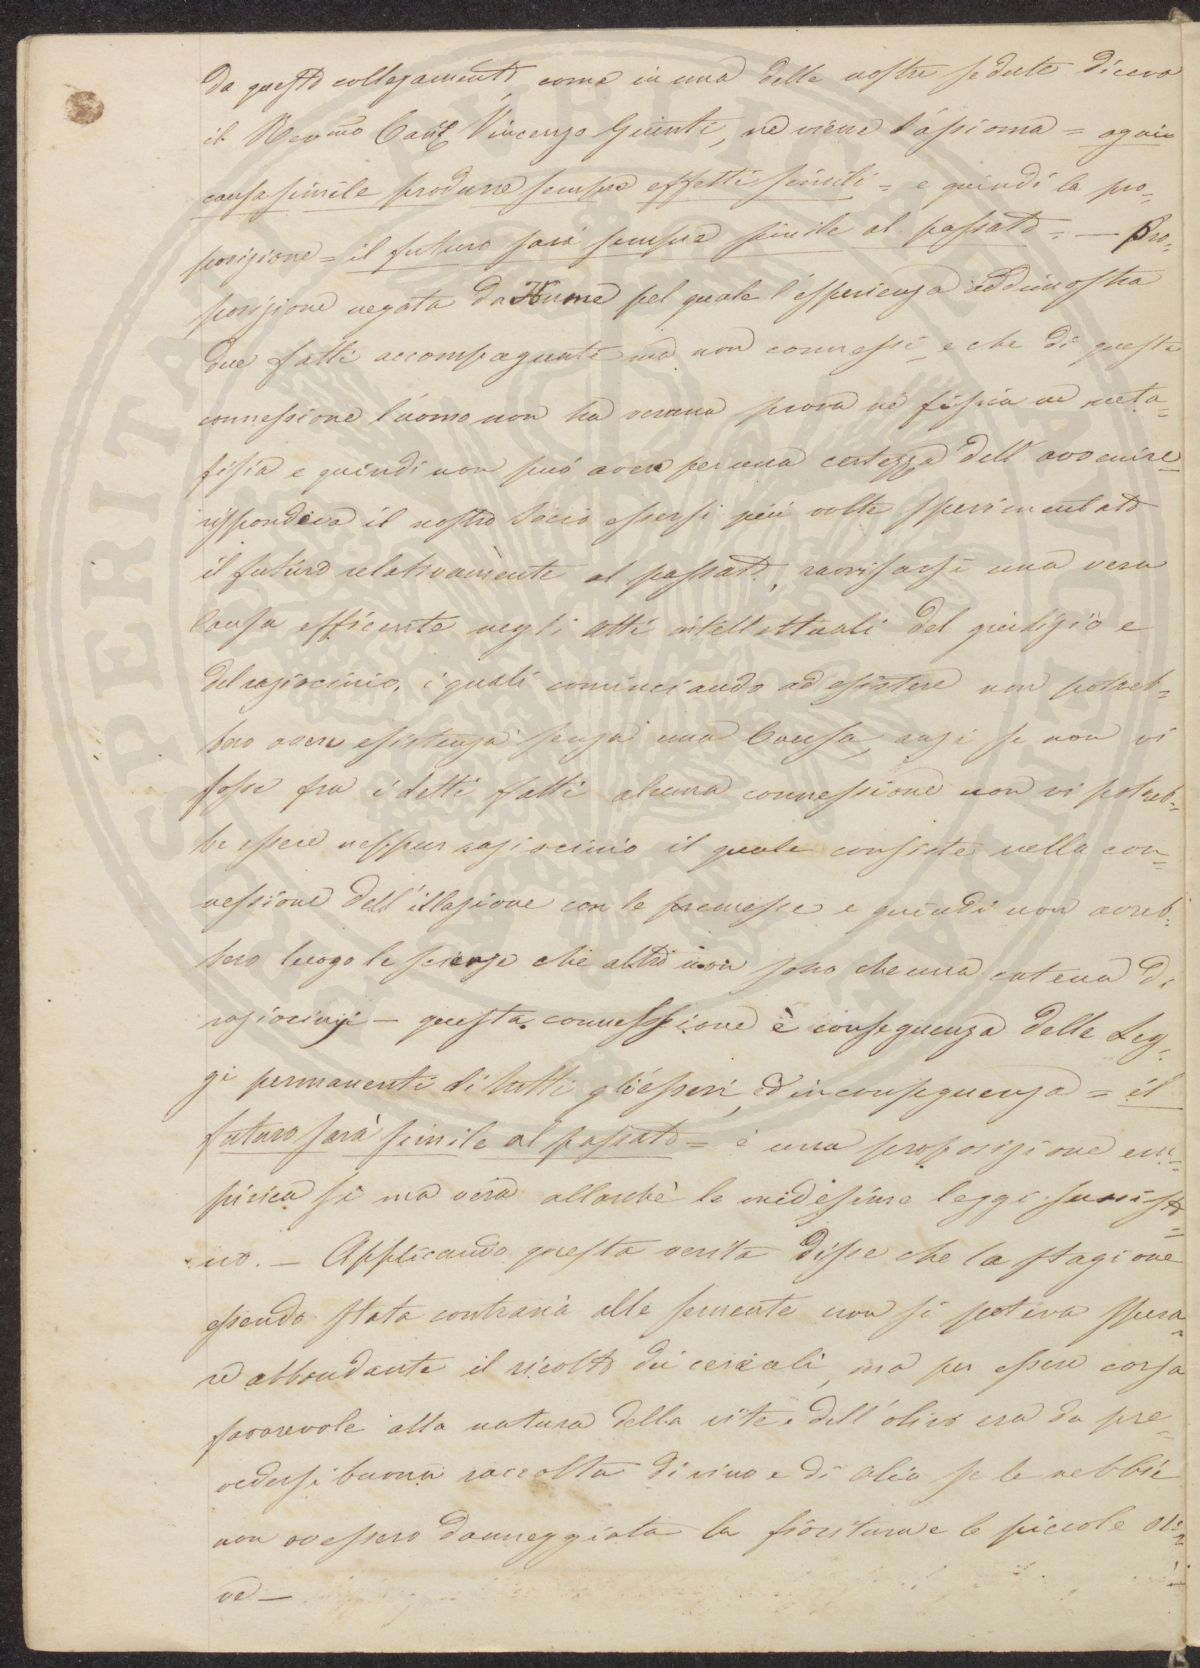 da questo collegamento, come in una delle nostre sedute diceva
il Rev.mo Cant.e Vincenzo Giunti, ne viene l'assioma = ogni
causa simile produrre sempre effetti simili = e quindi la pro=
posizione = il futuro sarà sempre simile al passato = — Pro=
posizione negata da Hume pel quale l'esperienza addimostra
due fatti accompagnati ma non connessi, e che di questa
connessione l'uomo non ha veruna prova nè fisica ne meta=
fisica e quindi non può avere per una certezza dell'avvenire =
rispondeva il nostro Socio essersi più volte sperimentato
il futuro relativamente al passato, ravvisarsi una vera
Causa efficiente negli atti intellettuali del giudizio e
del raziocinio, i quali cominciando ad esistere non potreb=
bero avere esistenza senza una Causa, anzi se non vi
fosse fra i detti fatti alcuna connessione non vi potreb=
be essere neppur raziocinio il quale consiste nella con=
nessione dell'illazione con le premesse e quindi non avreb=
bero luogo le scienze che altro non sono che una catena di
raziocinj — questa connessione è conseguenza delle Leg=
gi permanenti di tutti gli esseri, ed in conseguenza = il
futuro sarà simile al passato = è una proposizione em=
pirica si ma vera allorchè le medesime leggi sussisto=
no. — Applicando questa verità disse che la stagione
essendo stata contraria alle semente non si poteva spera=
re abbondante il ricolto dei cereali, ma per essere corsa
favorevole alla natura della vite e dell'olivo era da pre=
vedersi buona raccolta di vino e di olio se le nebbie
non avessero danneggiata la fioritura e le piccole oli=
ve —
ASPERITATE PVBLICAE